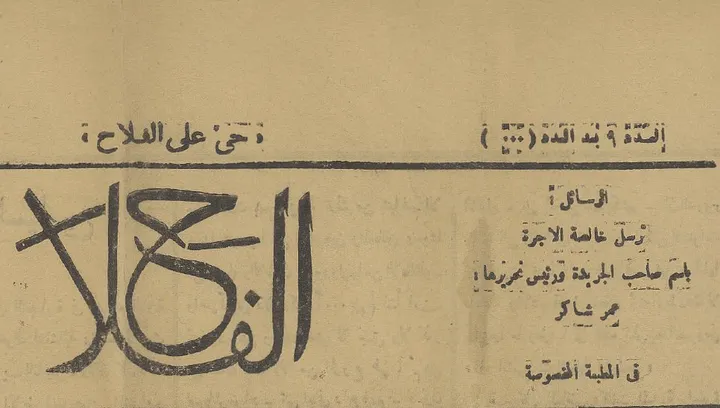 العدد ٩ بعد العدد (٠٠٠)
« حيّ على الفلاح »
الفلاح
الرسائل :
ترسل خالصة الاجرة
باسم صاحب الجريدة ورئيس تحريرها :
عمر شاكر
في المطبعة المخصوصة